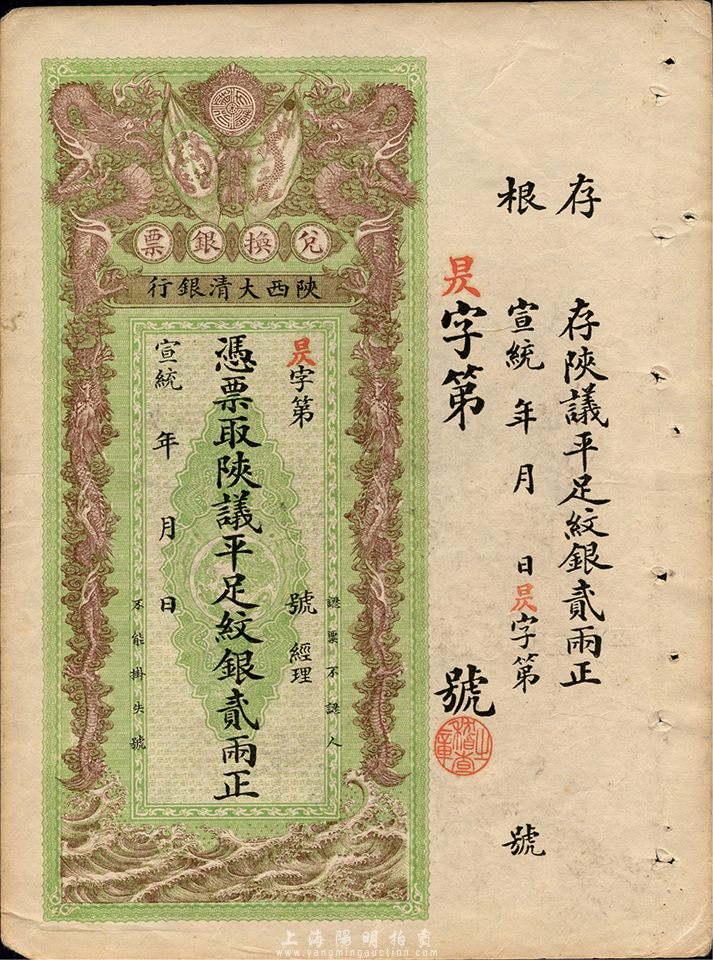 存根
存陝議平足紋銀貳兩正
宣統 年 月 日 昃字第 號
昃字第 號
稽查之章
兌換銀票
陝西大清銀行
認票不認人
昃字第 號 經理
憑票取陝議平足紋銀貳兩正
宣統 年 月 日
不能掛失號
上海陽明拍賣
www.yangmingauction.com